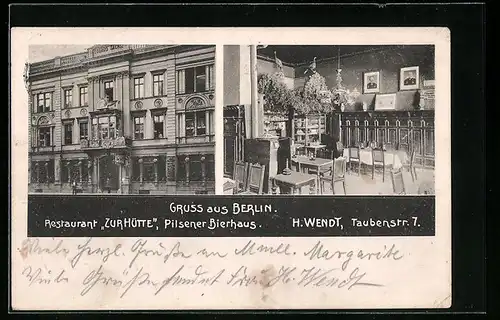 GRUSS AUS BERLIN.
Restaurant „ZUR HÜTTE", Pilsener Bierhaus. H. WENDT, Taubenstr. 7.
Viele herzl. Grüße an Mmll. Margarite
Viele Grüße sendet Frau H. Wendt